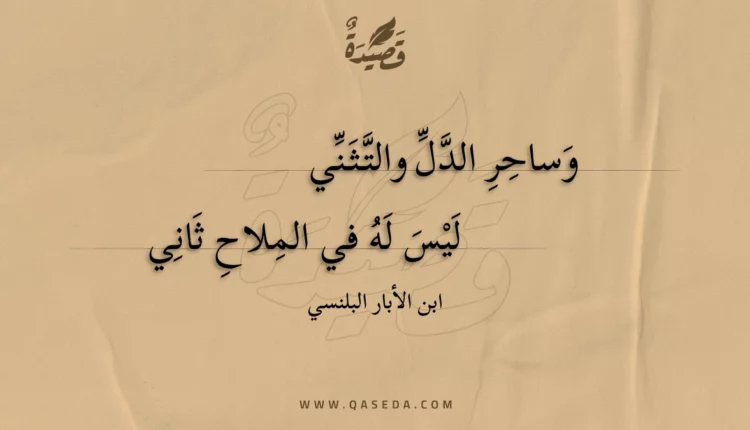 قَصِيْدَةٌ
وَساحِرِ الدَّلِّ والتَّثَنِّي
لَيْسَ لَهُ في المِلاحِ ثَانِي
ابن الأبار البلنسي
WWW.QASEDA.COM